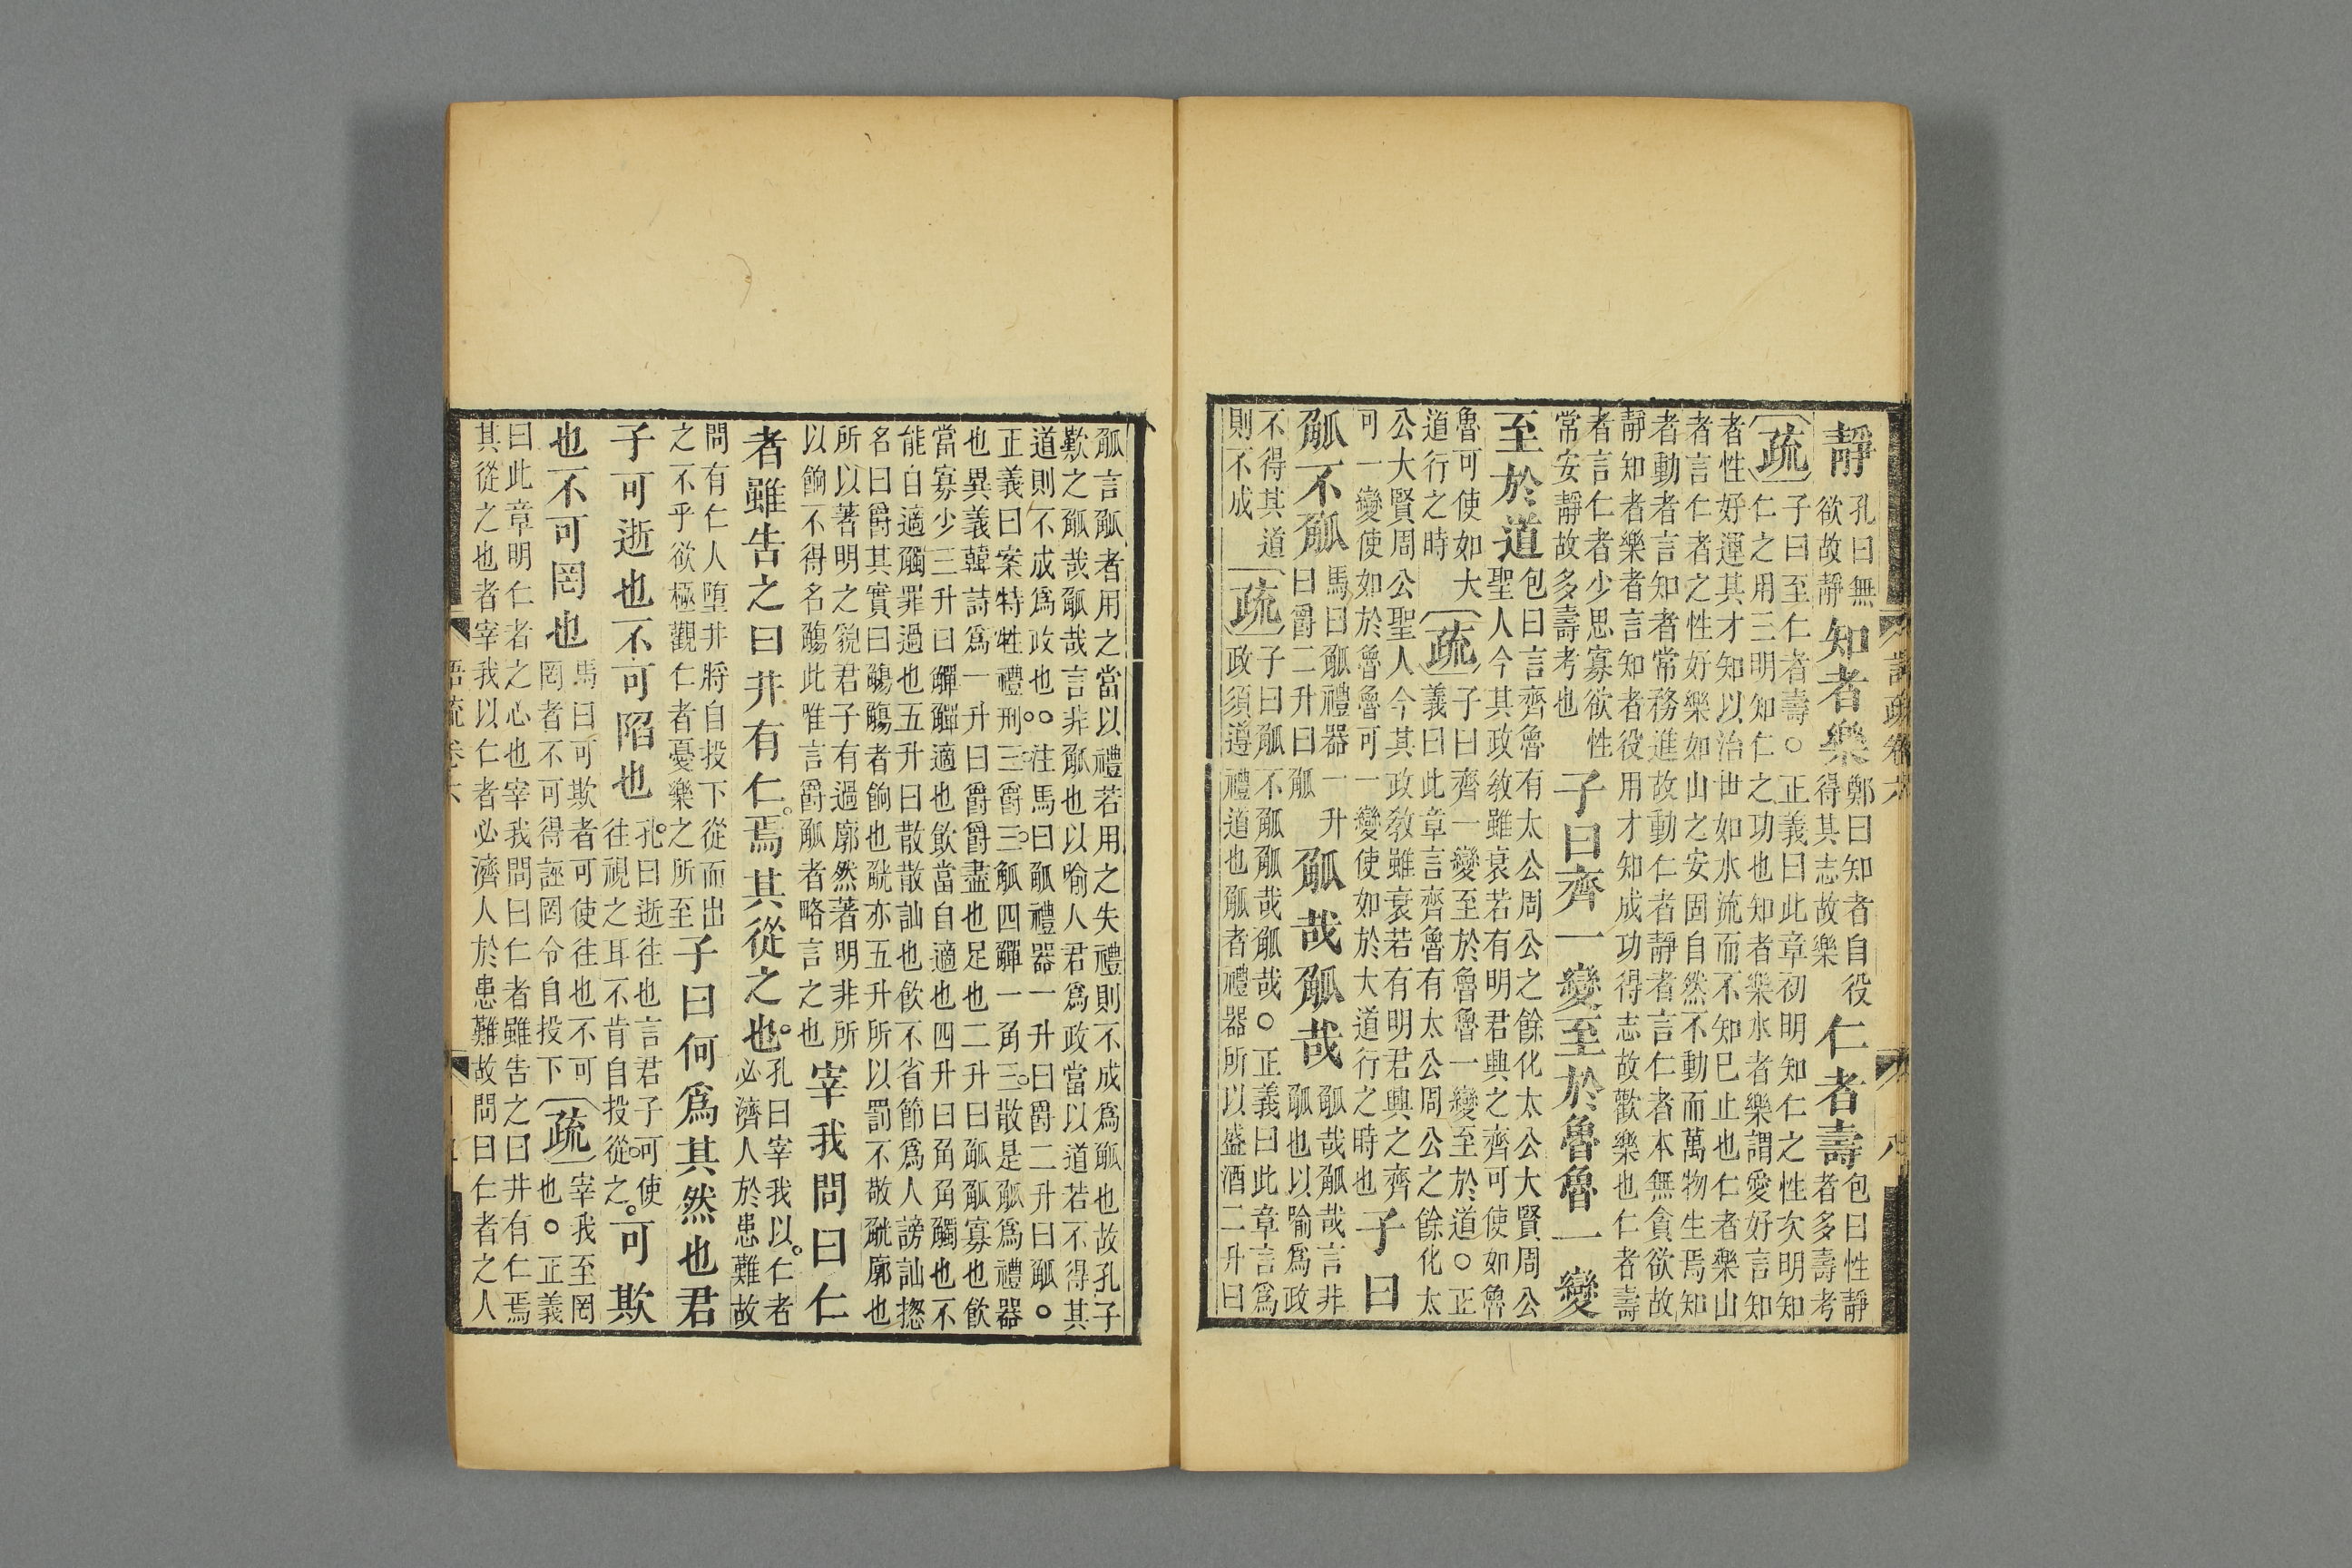 靜孔曰無欲故靜知者樂鄭曰知者自役得其志故樂仁者壽包曰性靜者多壽考
疏子曰至仁者壽○正義曰此章初明知仁之性次明知仁之用三明知仁之功也知者樂水者樂謂愛好言知
者性好運其才知以治世如水流而不知已止也仁者樂山
者言仁者之性好樂如山之安固自然不動而萬物生焉知
者動者言知者常務進故動仁者靜者言仁者本無貪欲故
靜知者樂者言知者役用才知成功得志故歡樂也仁者壽
者言仁者少思寡欲性常安靜故多壽考也子曰齊一變至於魯魯一變
至於道包曰言齊魯有太公周公之餘化太公大賢周公聖人今其政敎雖衰若有明君興之齊可使如魯
魯可使如大道行之時疏子曰齊一變至於魯魯一變至於道○正義曰此章言齊魯有太公周公之餘化太
公大賢周公聖人今其政敎雖衰若有明君興之齊可一變使如於魯魯可一變使如於大道行之時也子曰
觚不觚馬曰觚禮器一升曰爵二升曰觚觚哉觚哉觚哉觚哉言非觚也以喻爲政
不得其道則不成疏子曰觚不觚觚哉觚哉○正義曰此章言爲政須遵禮道也觚者禮器所以盛酒二升曰
觚言觚者用之當以禮若用之失禮則不成爲觚也故孔子
歎之觚哉觚哉言非觚也以喻人君爲政當以道若不得其
道則不成爲政也○○注馬曰觚禮器一升曰爵二升曰觚○
正義曰案特牲禮刑三爵三觚四觶一角三散是觚爲禮器
也異義韓詩爲一升曰爵爵盡也足也二升曰觚觚寡也飮
當寡少三升曰觶觶適也飮當自適也四升曰角角觸也不
能自適觸罪過也五升曰散散訕也飮不省節爲人謗訕揔
名曰爵其實曰觴觴者餉也觥亦五升所以罰不敬觥廓也
所以著明之貌君子有過廓然著明非所以餉不得名觴此唯言爵觚者略言之也宰我問曰仁
者雖告之曰井有仁焉其從之也孔曰宰我以仁者必濟人於患難故
問有仁人墮井將自投下從而出之不乎欲極觀仁者憂樂之所至子曰何爲其然也君
子可逝也不可陷也孔曰逝往也言君子可使往視之耳不肯自投從之可欺
也不可罔也馬曰可欺者可使往也不可罔者不可得誣罔令自投下疏宰我至罔也○正義
曰此章明仁者之心也宰我問曰仁者雖告之曰井有仁焉
其從之也者宰我以仁者必濟人於患難故問曰仁者之人